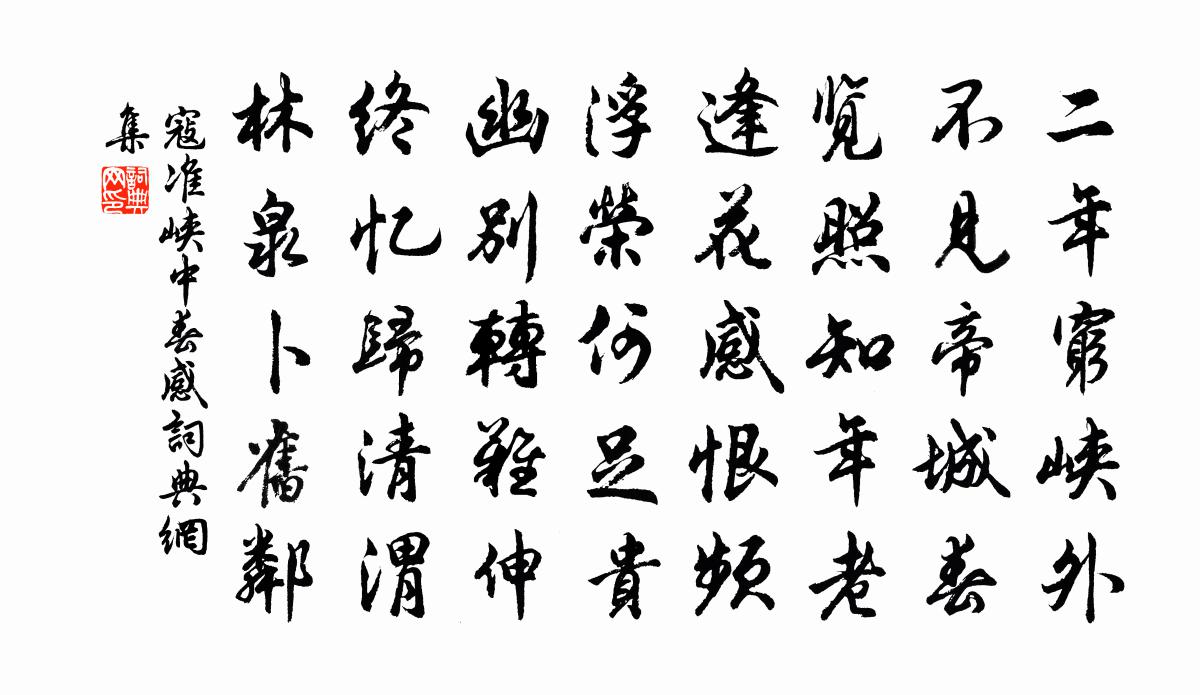 二年窮峽外
不見帝城春
覧照知年老
逢花感恨頻
浮榮何足貴
幽別轉難伸
終忆歸清渭
林泉卜舊鄰
寇准峽中春感詞典網
集
詞典
网印